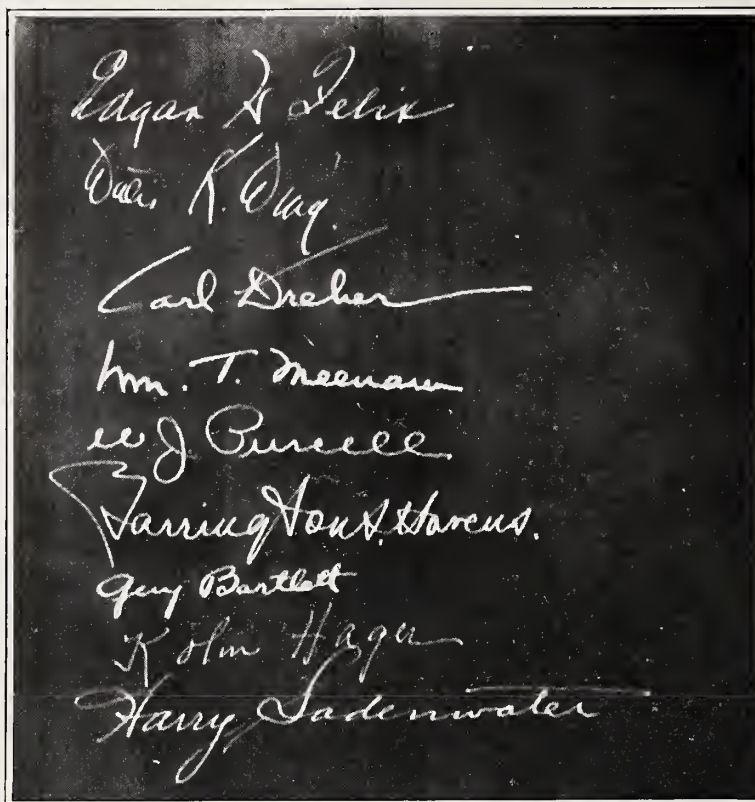 Edgar H Felix
K.
Carl Dreher
Wm. T. Meenam
W J Purcell
Barrington S. Havens.
Guy Bartlett
Kolin Hager
Harry Sadenwater